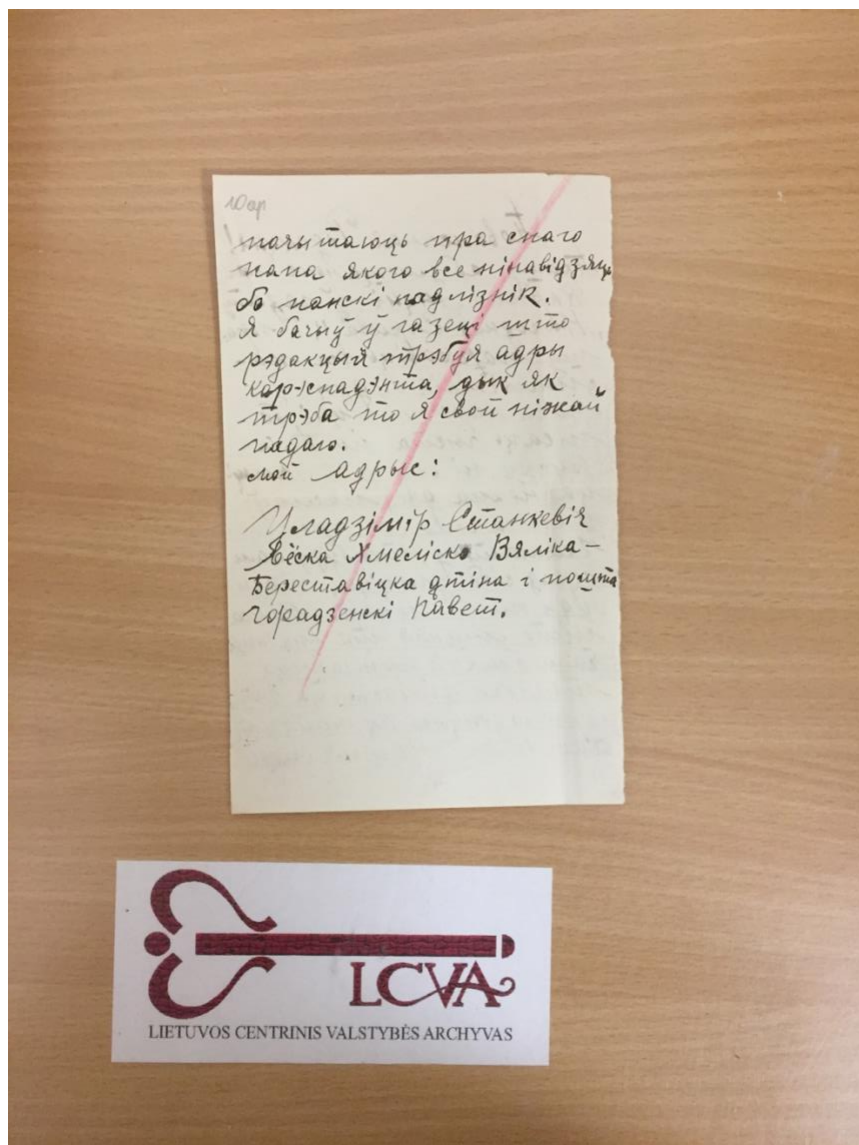 10ap
пачытаюць пра снаго
папа якого все нінавідзяць
бо панскі падлізнік.
Я бачыў ў газеці што
рэдакцыя трэбуя адры
карэспадэнта, дык як
трэба то я свой ніжай
падаю.
мой адрыс:
Уладзімір Станкевіч
Вёска Хмеліско Вяліка-
Береставіцка гміна і пошта
Горадзенскі Павет.
LCVA
LIETUVOS CENTRINIS VALSTYBĖS ARCHYVAS